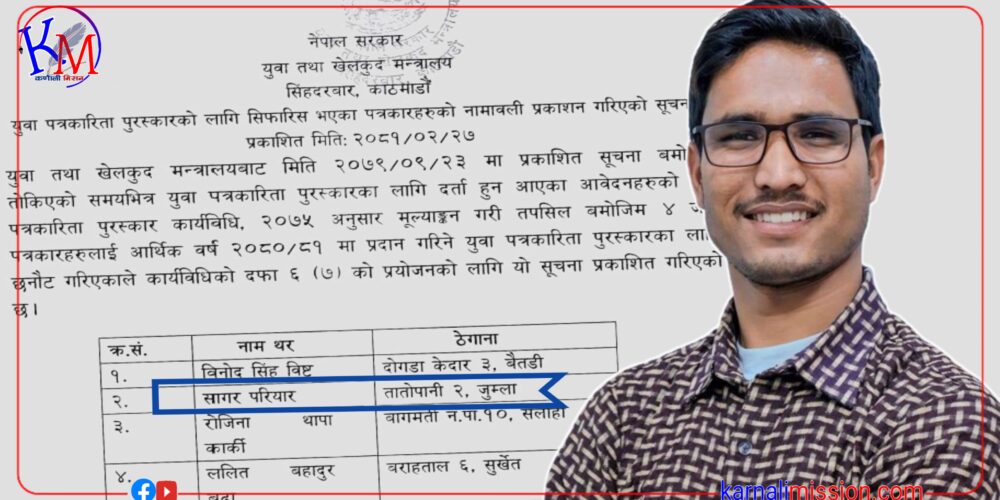 KM
कर्णाली मिसन
नेपाल सरकार
युवा तथा खेलकुद मन्त्रालय
सिंहदरबार, काठमाडौं
युवा पत्रकारिता पुरस्कारको लागि सिफारिस भएका पत्रकारहरुको नामावली प्रकाशन गरिएको सूचन
प्रकाशित मिति: २०८१/०२/२७
युवा तथा खेलकुद मन्त्रालयबाट मिति २०७९/०९/२३ मा प्रकाशित सूचना बमो
तोकिएको समयभित्र युवा पत्रकारिता पुरस्कारका लागि दर्ता हुन आएका आवेदनहरुको
पत्रकारिता पुरस्कार कार्यविधि, २०७५ अनुसार मूल्याङ्कन गरी तपसिल बमोजिम ४ ज
पत्रकारहरुलाई आर्थिक वर्ष २०८०/८१ मा प्रदान गरिने युवा पत्रकारिता पुरस्कारका ला
छनौट गरिएकाले कार्यविधिको दफा ६ (७) को प्रयोजनको लागि यो सूचना प्रकाशित गरिएको
छ।
क्र.सं. नाम थर ठेगाना
१. विनोद सिंह विष्ट दोगडा केदार ३, बैतडी
२. सागर परियार तातोपानी २, जुम्ला
३. रोजिना थापा बागमती न.पा.१०, सर्लाही
कार्की
४. ललित बहादुर बराहताल ६, सुर्खेत
karnalimission.com